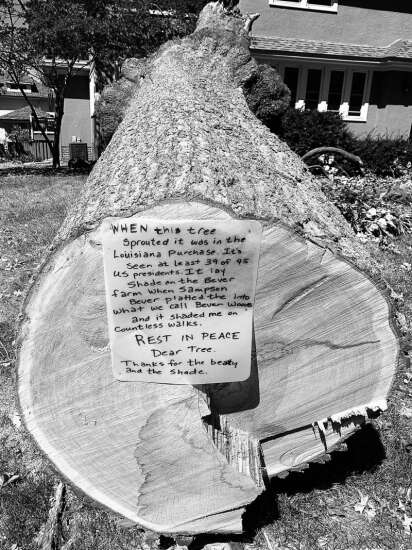 WHEN this tree
Sprouted it was in the
Louisiana Purchase. It's
Seen at least 39 of 45
US presidents. It lay
Shade on the Bever
farm when Sampson
Bever platted the into
what we call Bever Woods
and it shaded me on
Countless walks.
REST IN PEACE
Dear Tree.
Thanks for the beauty
and the Shade.